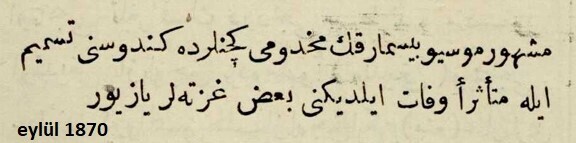 مشهور موسيو بيسمارقك مخدومى كچنلرده كندوسنى تسميم
ايله متأثراً وفات ايلديكنى بعض غزته‌لر يازيور
eylül 1870